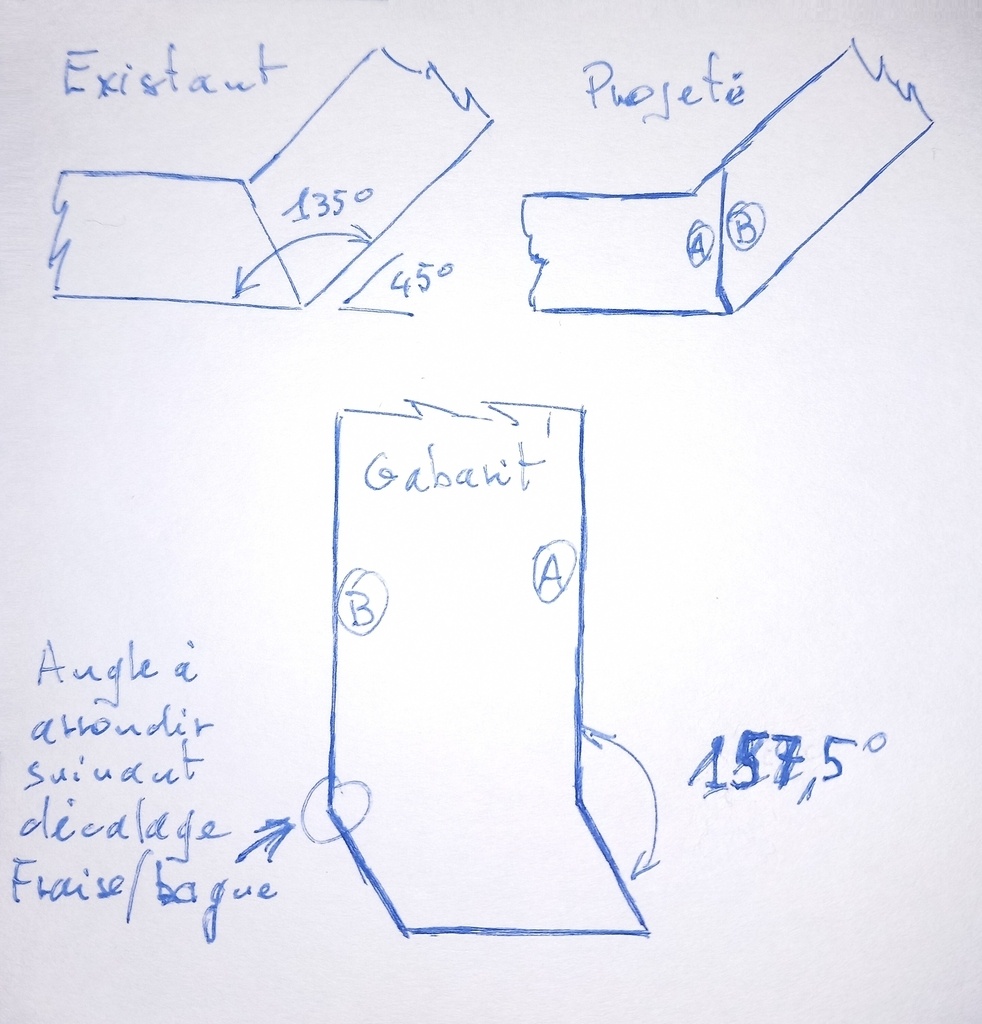 Existant
Projeté
135°
45°
A
B
Gabarit
B
A
Angle à
arrondir
suivant
décalage
Fraise/bague
157,5°